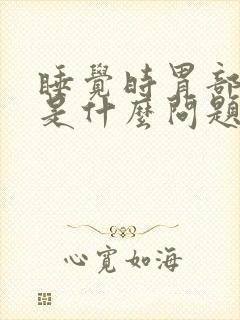 睡覺時胃部
是什麼問題
心寬如海